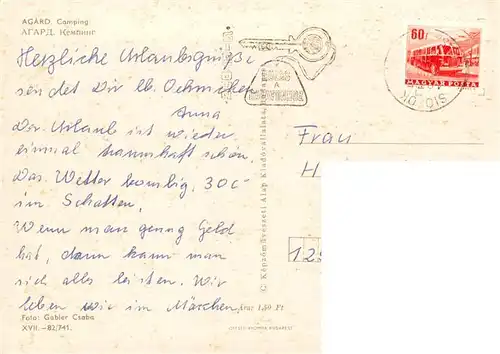 AGÁRD. Camping
АГАРД. Кемпинг
Herzliche Urlaubsgrüße
sendet Dir lb. Oehmchen
Anna
Der Urlaub ist wieder
einmal traumhaft schön.
Das Wetter bombig, 30 C°
im Schatten.
Wenn man genug Geld
hat, dann kann man
sich alles leisten. Wir
leben wie im Märchen.
Foto: Gabler Csaba
XVII.—82/741.
Ára: 1,50 Ft
© Képzőművészeti Alap Kiadóvállalata, Budapest
60f
MAGYAR POSTA
SIÓFOK
Frau
H
125